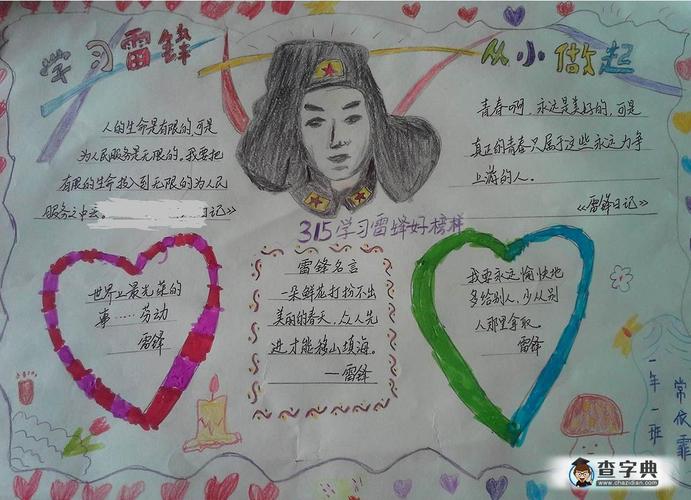 学习雷锋
从小做起
人的生命是有限的,可是
为人民服务是无限的,我要把
有限的生命投入到无限的为人民
服务之中去。
日记》
青春啊,永远是美好的,可是
真正的青春只属于这些永远力争
上游的人。
《雷锋日记》
315学习雷锋好榜样
世界上最光荣的
事……劳动
雷锋
雷锋名言
一朵鲜花打扮不出
美丽的春天,众人先
进才能移山填海。
——雷锋
我要永远愉快地
多给别人,少从别
人那里拿取。
雷锋
一年一班
常依霏
查字典
www.chazidian.com